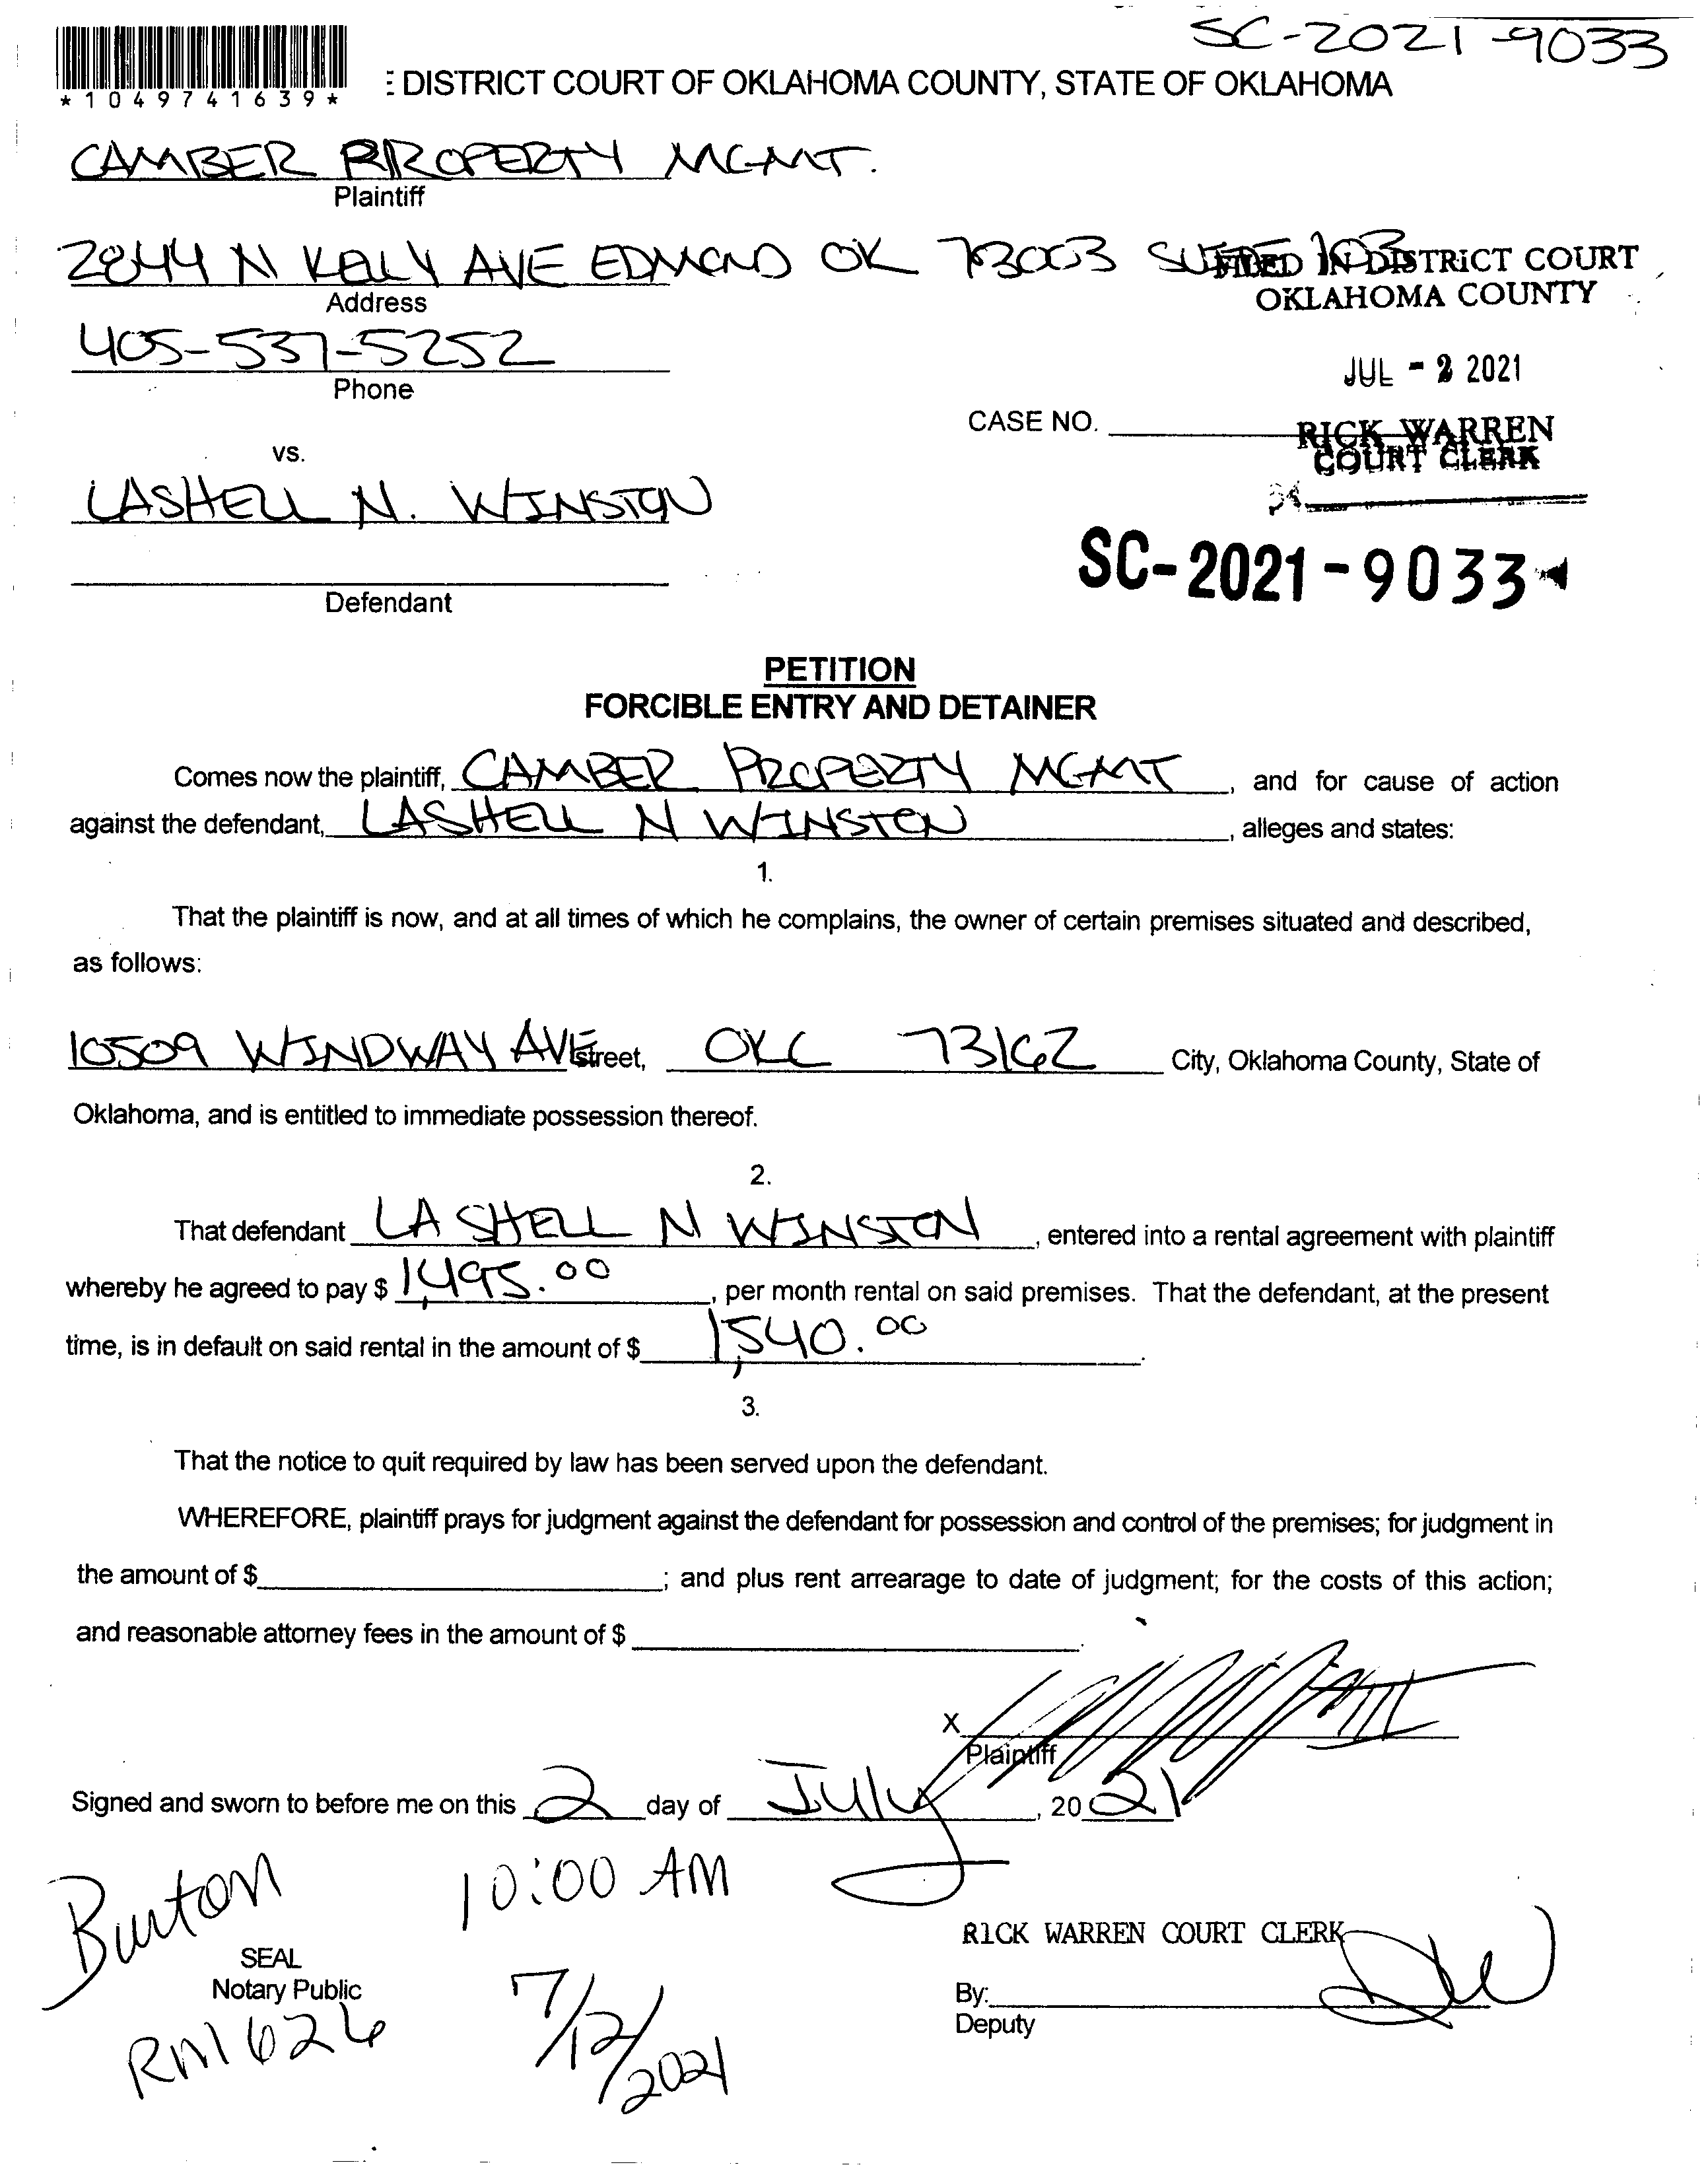 SC-2021-9033
*1049741639*
E DISTRICT COURT OF OKLAHOMA COUNTY, STATE OF OKLAHOMA
CAMBER PROPERTY MGMT.
Plaintiff
2844 N KELLY AVE EDMOND OK 73003 SUITE 103
FILED IN DISTRICT COURT
OKLAHOMA COUNTY
Address
405-537-5252
Phone
JUL - 2 2021
CASE NO.
RICK WARREN
COURT CLERK
vs.
LASHELL N. WINSTON
SC-2021-9033
Defendant
PETITION
FORCIBLE ENTRY AND DETAINER
Comes now the plaintiff, CAMBER PROPERTY MGMT, and for cause of action
against the defendant, LASHELL N WINSTON, alleges and states:
1.
That the plaintiff is now, and at all times of which he complains, the owner of certain premises situated and described,
as follows:
10509 WINDWAY AVE street, OKC 73162 City, Oklahoma County, State of
Oklahoma, and is entitled to immediate possession thereof.
2.
That defendant LASHELL N WINSTON, entered into a rental agreement with plaintiff
whereby he agreed to pay $ 1,495.00, per month rental on said premises. That the defendant, at the present
time, is in default on said rental in the amount of $ 1,540.00.
3.
That the notice to quit required by law has been served upon the defendant.
WHEREFORE, plaintiff prays for judgment against the defendant for possession and control of the premises; for judgment in
the amount of $ ; and plus rent arrearage to date of judgment; for the costs of this action;
and reasonable attorney fees in the amount of $ .
X
Plaintiff
Signed and sworn to before me on this 2 day of July, 2021
Burton 10:00 AM
RICK WARREN COURT CLERK
SEAL
Notary Public
By:
Deputy
RM 626 7/12/2021